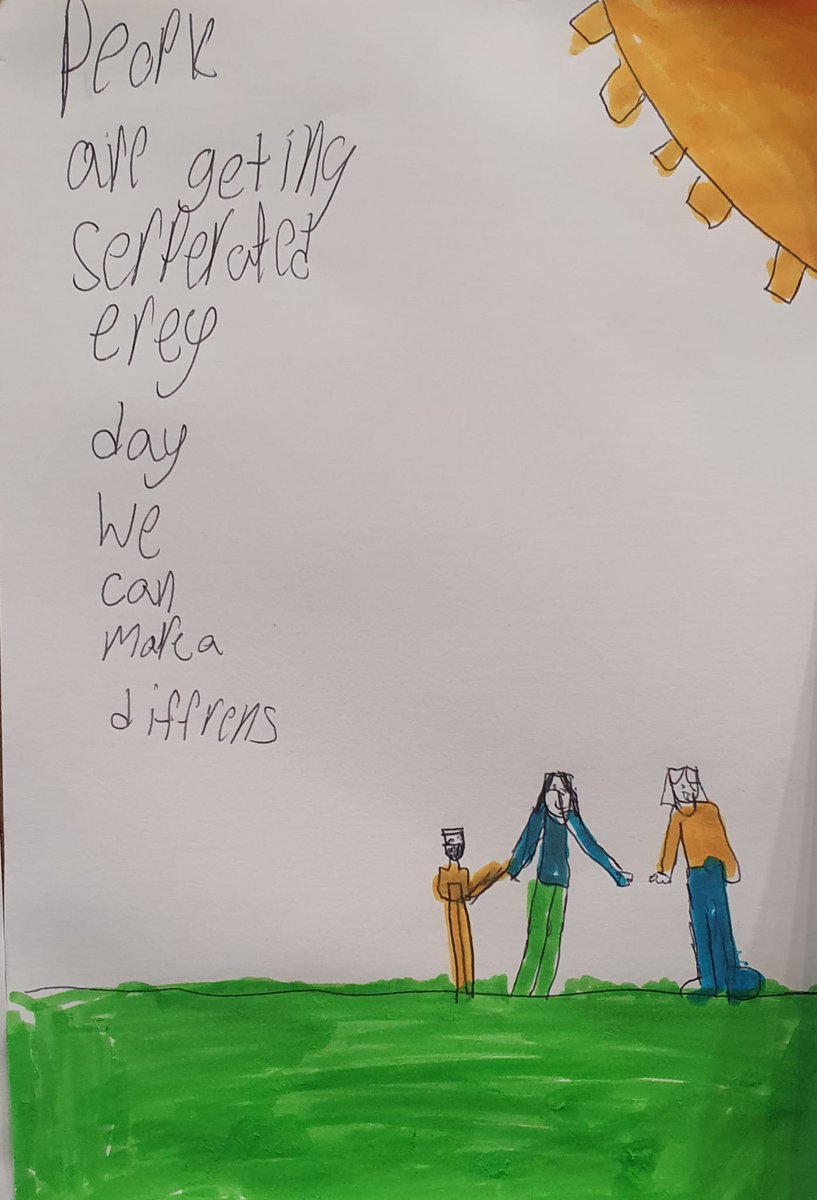 People
are geting
serperated
erey
day
we
can
make a
diffrens